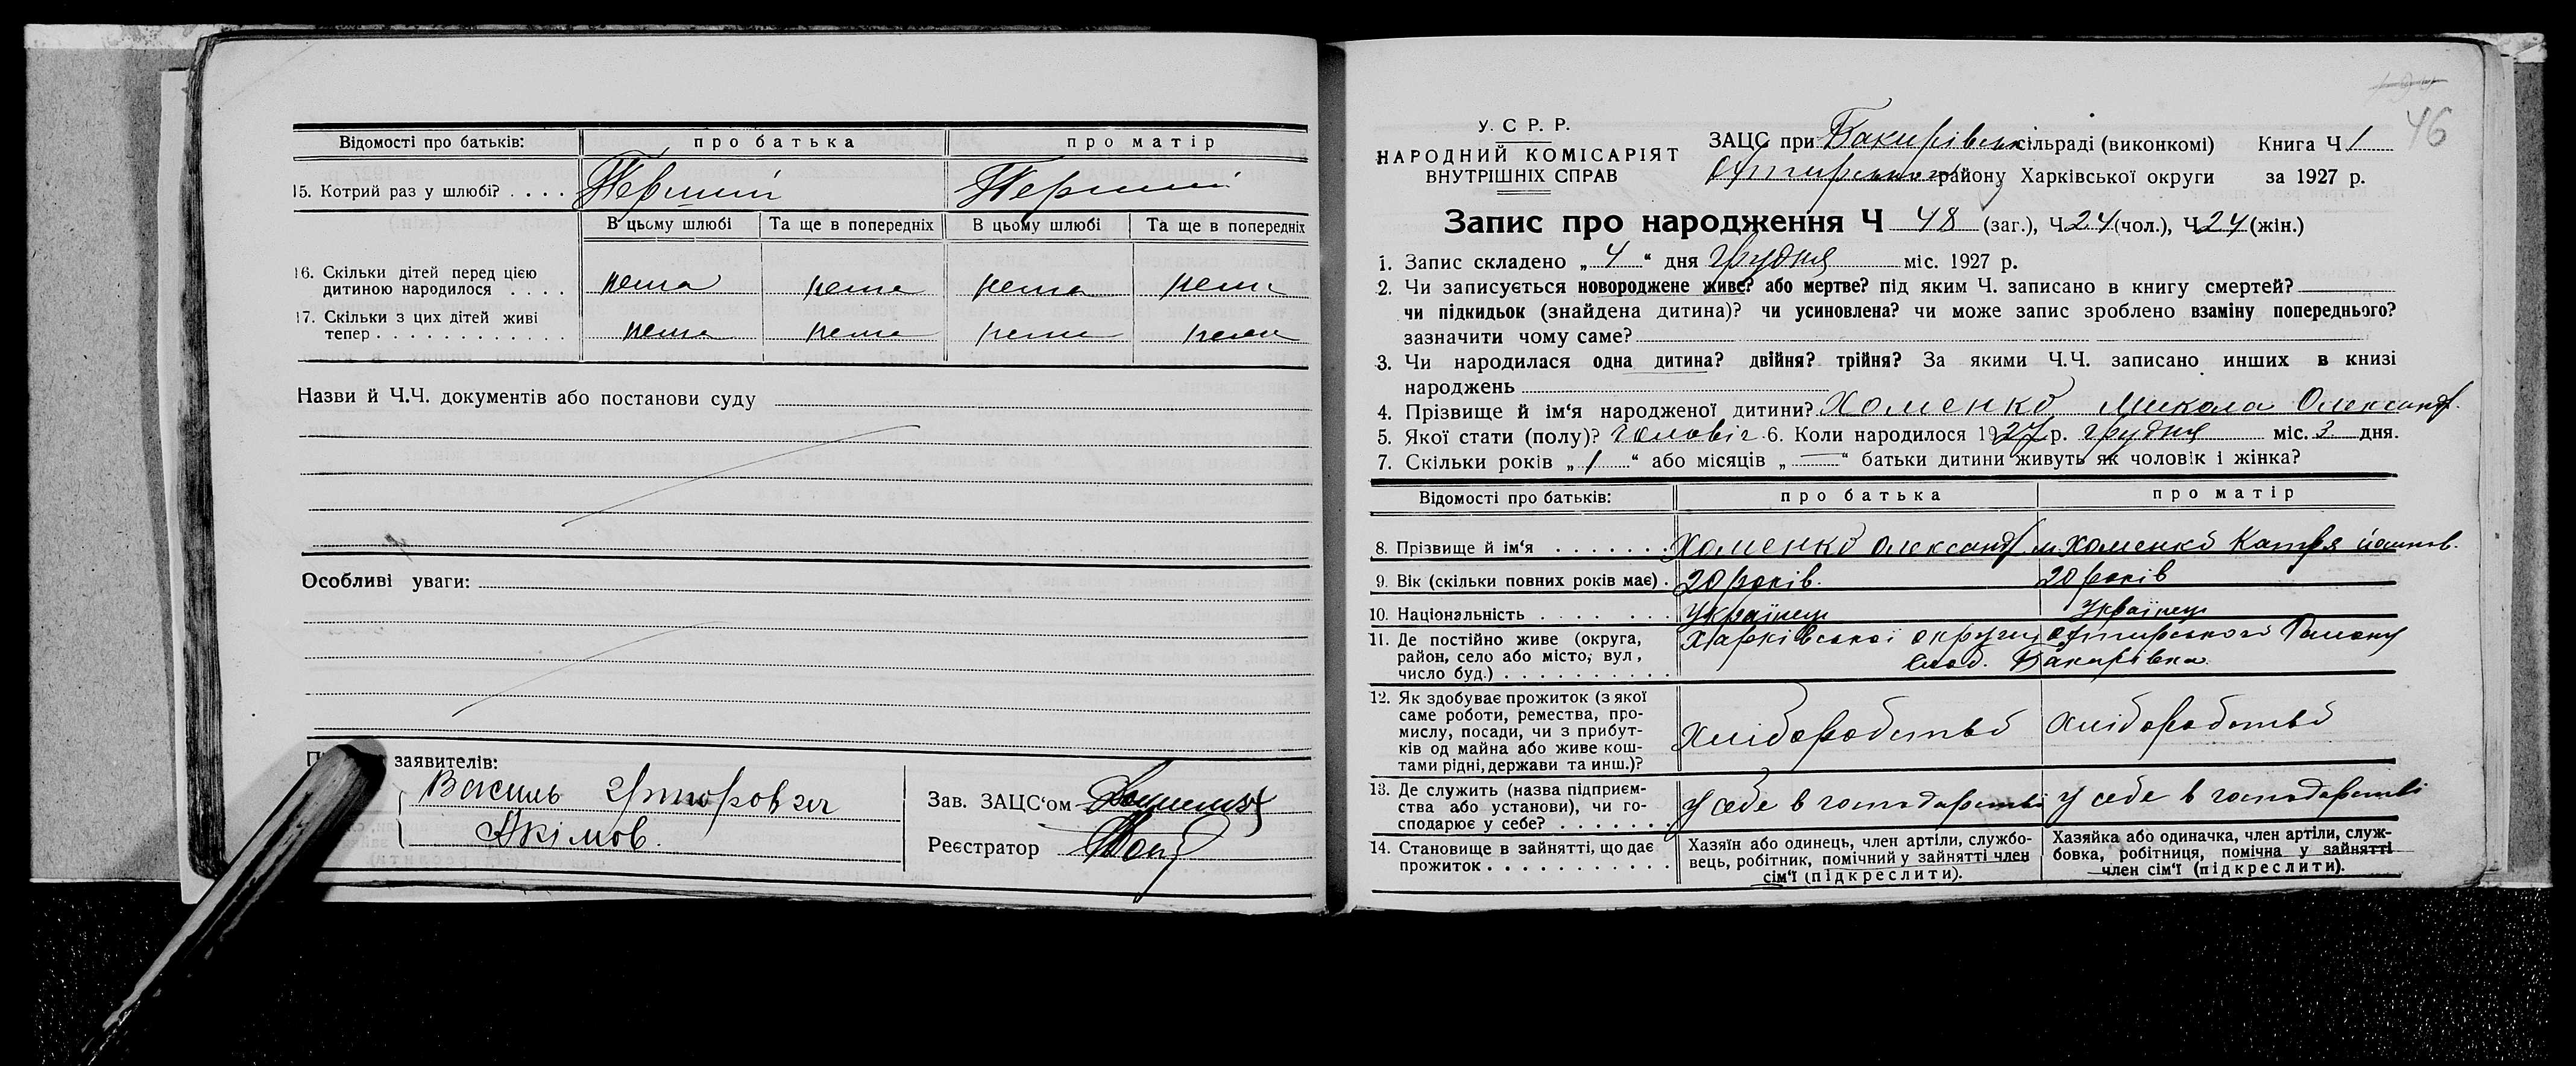 Відомості про батьків: про батька про матір
15. Котрий раз у шлюбі? . . . . Перший Перший
В цьому шлюбі Та ще в попередніх В цьому шлюбі Та ще в попередніх
16. Скільки дітей перед цією
дитиною народилося . . . . нема нема нема нема
17. Скільки з цих дітей живі
тепер . . . . . . . . . . . . нема нема нема нема
Назви й Ч.Ч. документів або постанови суду
Особливі уваги:
заявителів:
Василь
Якімов.
Зав. ЗАЦС‘ом
Реєстратор
46
У. С Р. Р.
НАРОДНИЙ КОМІСАРІЯТ
ВНУТРІШНІХ СПРАВ
ЗАЦС при Бакирівськ сільраді (виконкомі) Книга Ч 1
Охтирського району Харківської округи за 1927 р.
Запис про народження Ч 48 (заг.), Ч 24 (чол.), Ч 24 (жін.)
1. Запис складено „ 4 “ дня грудня міс. 1927 р.
2. Чи записується новороджене живе? або мертве? під яким Ч. записано в книгу смертей?
чи підкидьок (знайдена дитина)? чи усиновлена? чи може запис зроблено взаміну попереднього?
зазначити чому саме?
3. Чи народилася одна дитина? двійня? трійня? За якими Ч.Ч. записано инших в книзі
народжень
4. Прізвище й ім‘я народженої дитини? Хоменко Микола Олександ.
5. Якої стати (полу)? Чоловіч. 6. Коли народилося 1927 р. грудня міс. 3 дня.
7. Скільки років „ 1 “ або місяців „ — “ батьки дитини живуть як чоловік і жінка?
Відомості про батьків: про батька про матір
8. Прізвище й ім‘я . . . . . . . Хоменко Олександ. М. Хоменко Катря
9. Вік (скільки повних років має) . 20 років. 20 років
10. Національність . . . . . . . Українець Українець
11. Де постійно живе (округа,
район, село або місто, вул,
число буд.) . . . . . . . . . . Харківської округи Охтирського Району
Слоб. Бакирівка.
12. Як здобуває прожиток (з якої
саме роботи, ремества, про-
мислу, посади, чи з прибут-
ків од майна або живе кош-
тами рідні, держави та инш.)? Хліборобство Хліборобство
13. Де служить (назва підприєм-
ства або установи), чи го-
сподарює у себе? . . . . . . . У себе в господарстві У себе в господарстві
14. Становище в зайнятті, що дає
прожиток . . . . . . . . . . .
Хазяїн або одинець, член артіли, службо-
вець, робітник, помічний у зайнятті член
сім‘ї (підкреслити).
Хазяйка або одиначка, член артіли, служ-
бовка, робітниця, помічна у зайнятті
член сім‘ї (підкреслити).